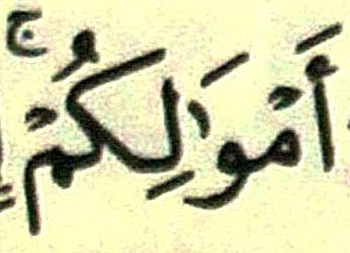 أَمْوَٰلِكُمْۚ